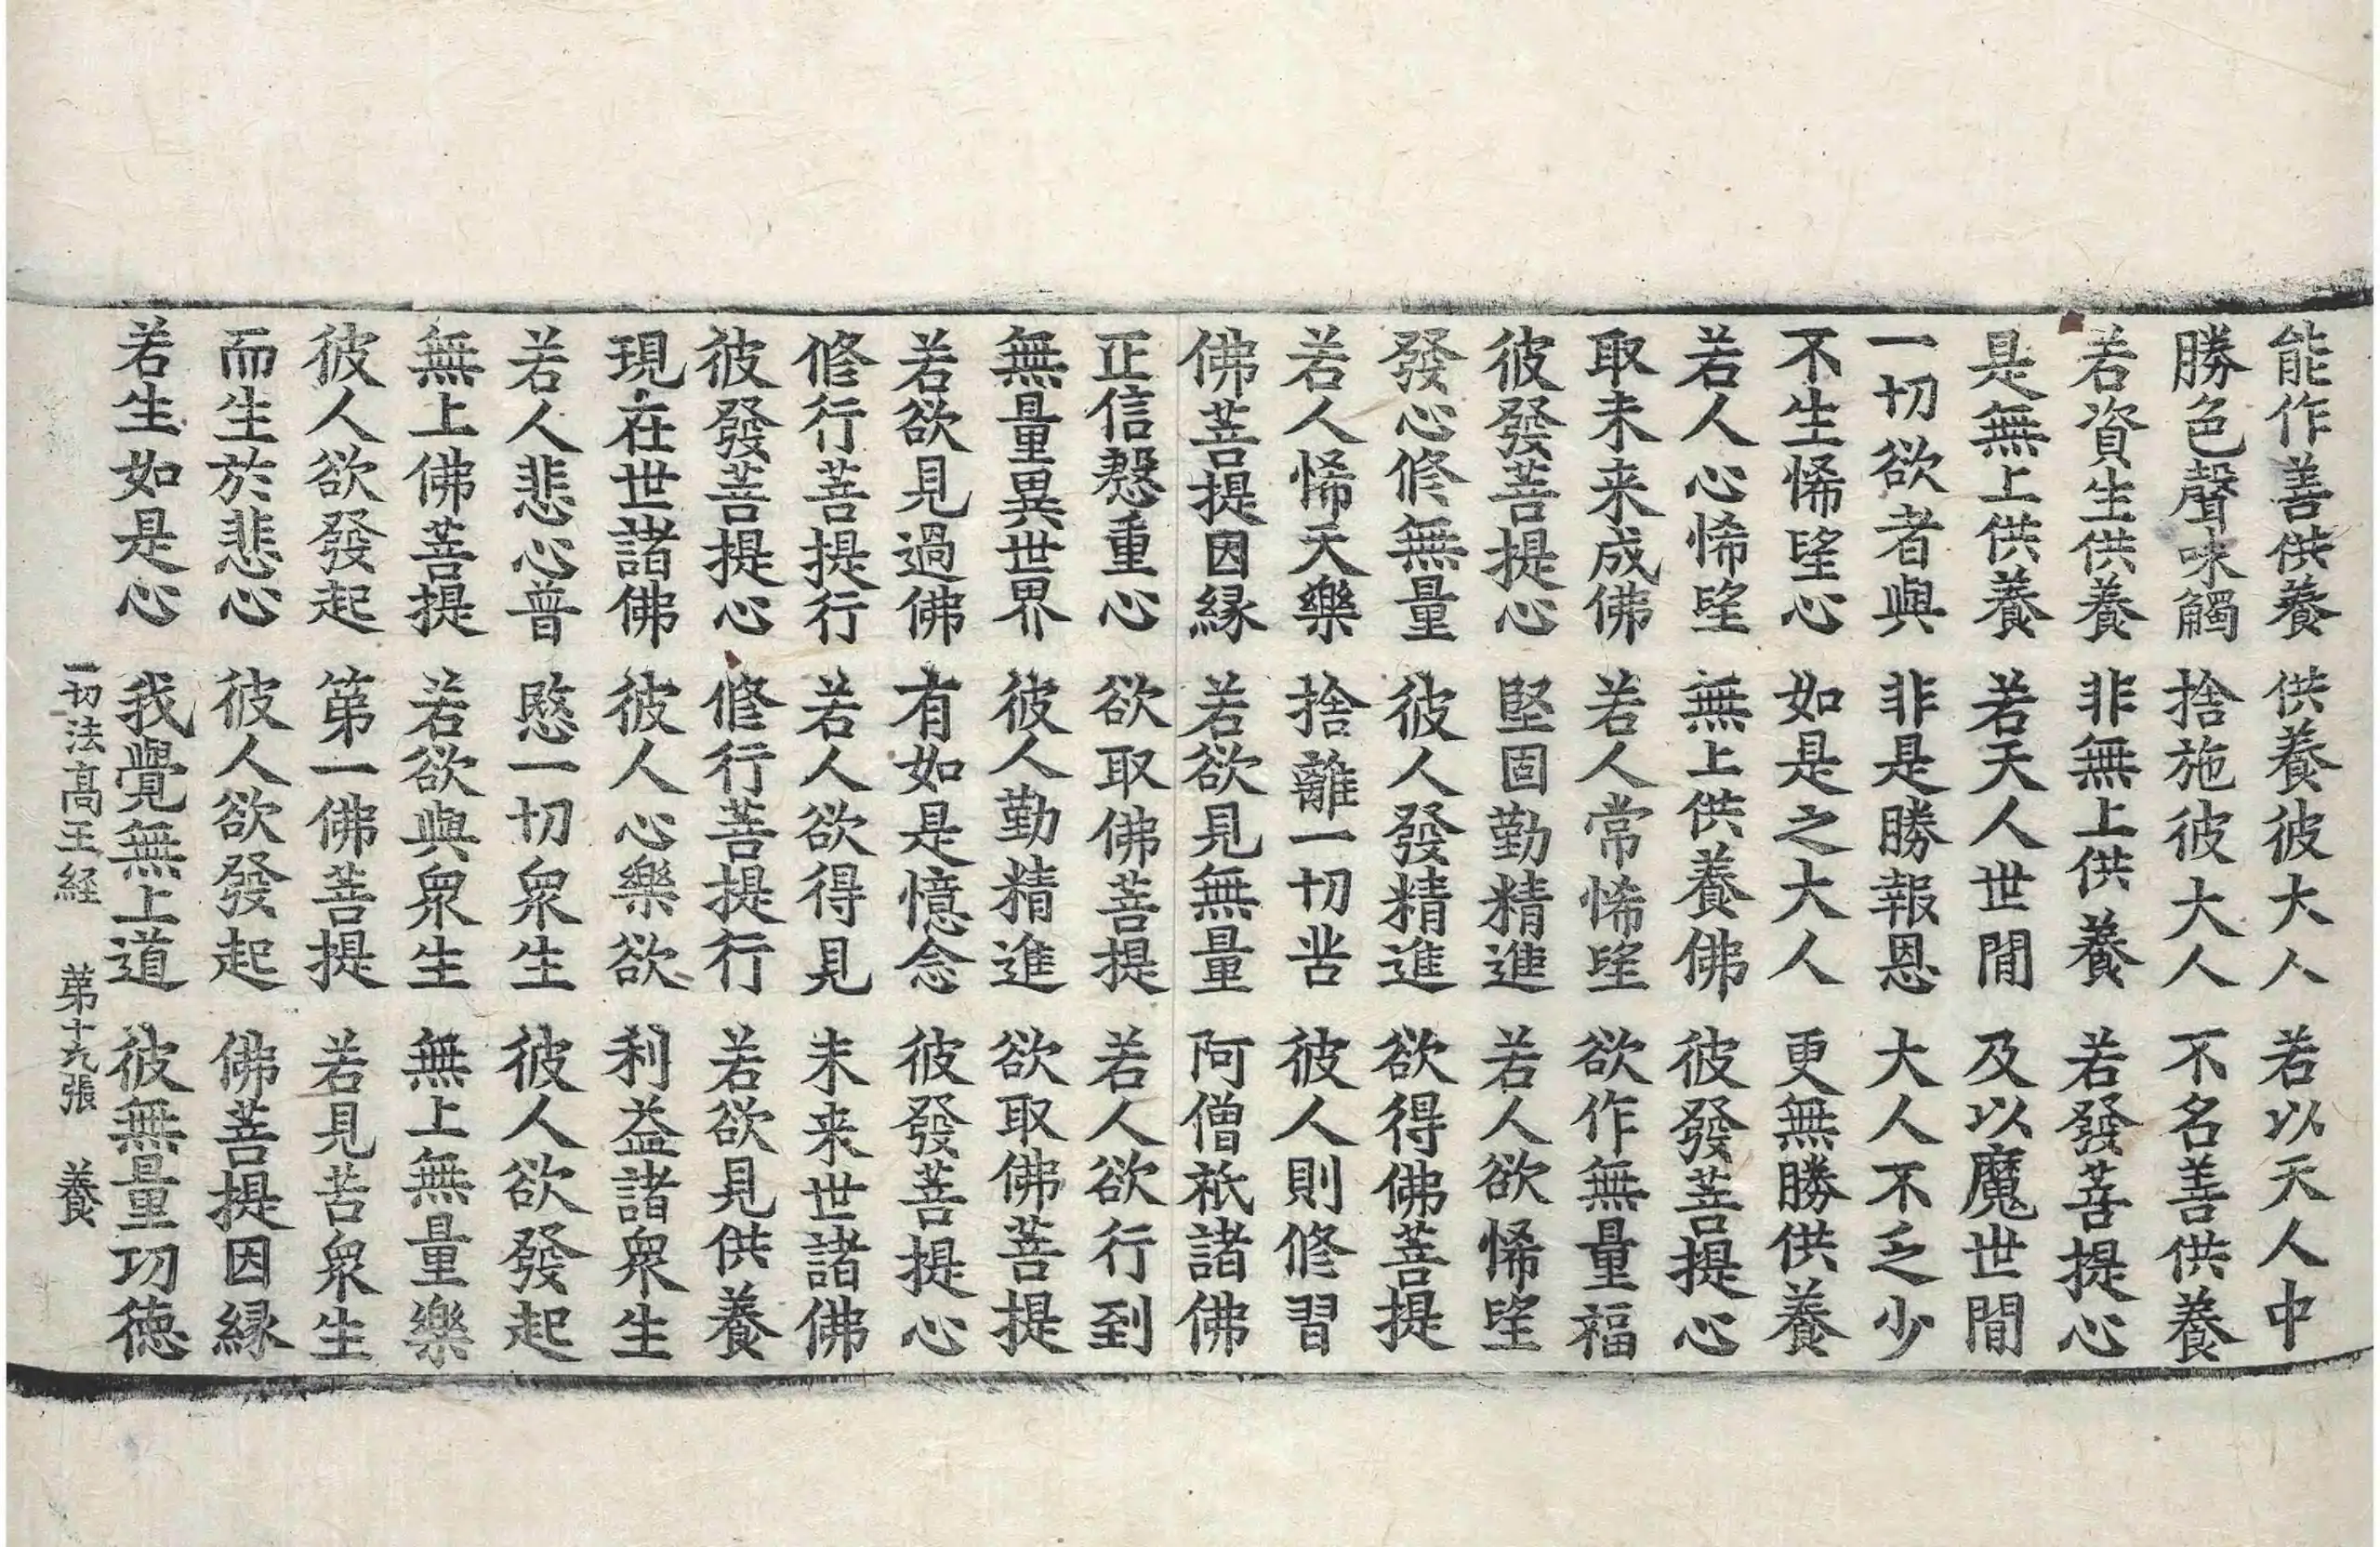 能作善供養 供養彼大人 若以天人中
勝色聲味觸 捨施彼大人 不名善供養
若資生供養 非無上供養 若發菩提心
是無上供養 若天人世間 及以魔世間
一切欲者與 非是勝報恩 大人不乏少
不生悕望心 如是之大人 更無勝供養
若人心悕望 無上供養佛 彼發菩提心
取未来成佛 若人常悕望 欲作無量福
彼發菩提心 堅固勤精進 若人欲悕望
發心修無量 彼人發精進 欲得佛菩提
若人悕天樂 捨離一切苦 彼人則修習
佛菩提因縁 若欲見無量 阿僧祇諸佛
正信慇重心 欲取佛菩提 若人欲行到
無量異世界 彼人勤精進 欲取佛菩提
若欲見過佛 有如是憶念 彼發菩提心
修行菩提行 若人欲得見 未来世諸佛
彼發菩提心 修行菩提行 若欲見供養
現在世諸佛 彼人心樂欲 利益諸衆生
若人悲心普 愍一切衆生 彼人欲發起
無上佛菩提 若欲與衆生 無上無量樂
彼人欲發起 第一佛菩提 若見苦衆生
而生於悲心 彼人欲發起 佛菩提因縁
若生如是心 我覺無上道 彼無量功徳
一切法高王経 第十九張 養